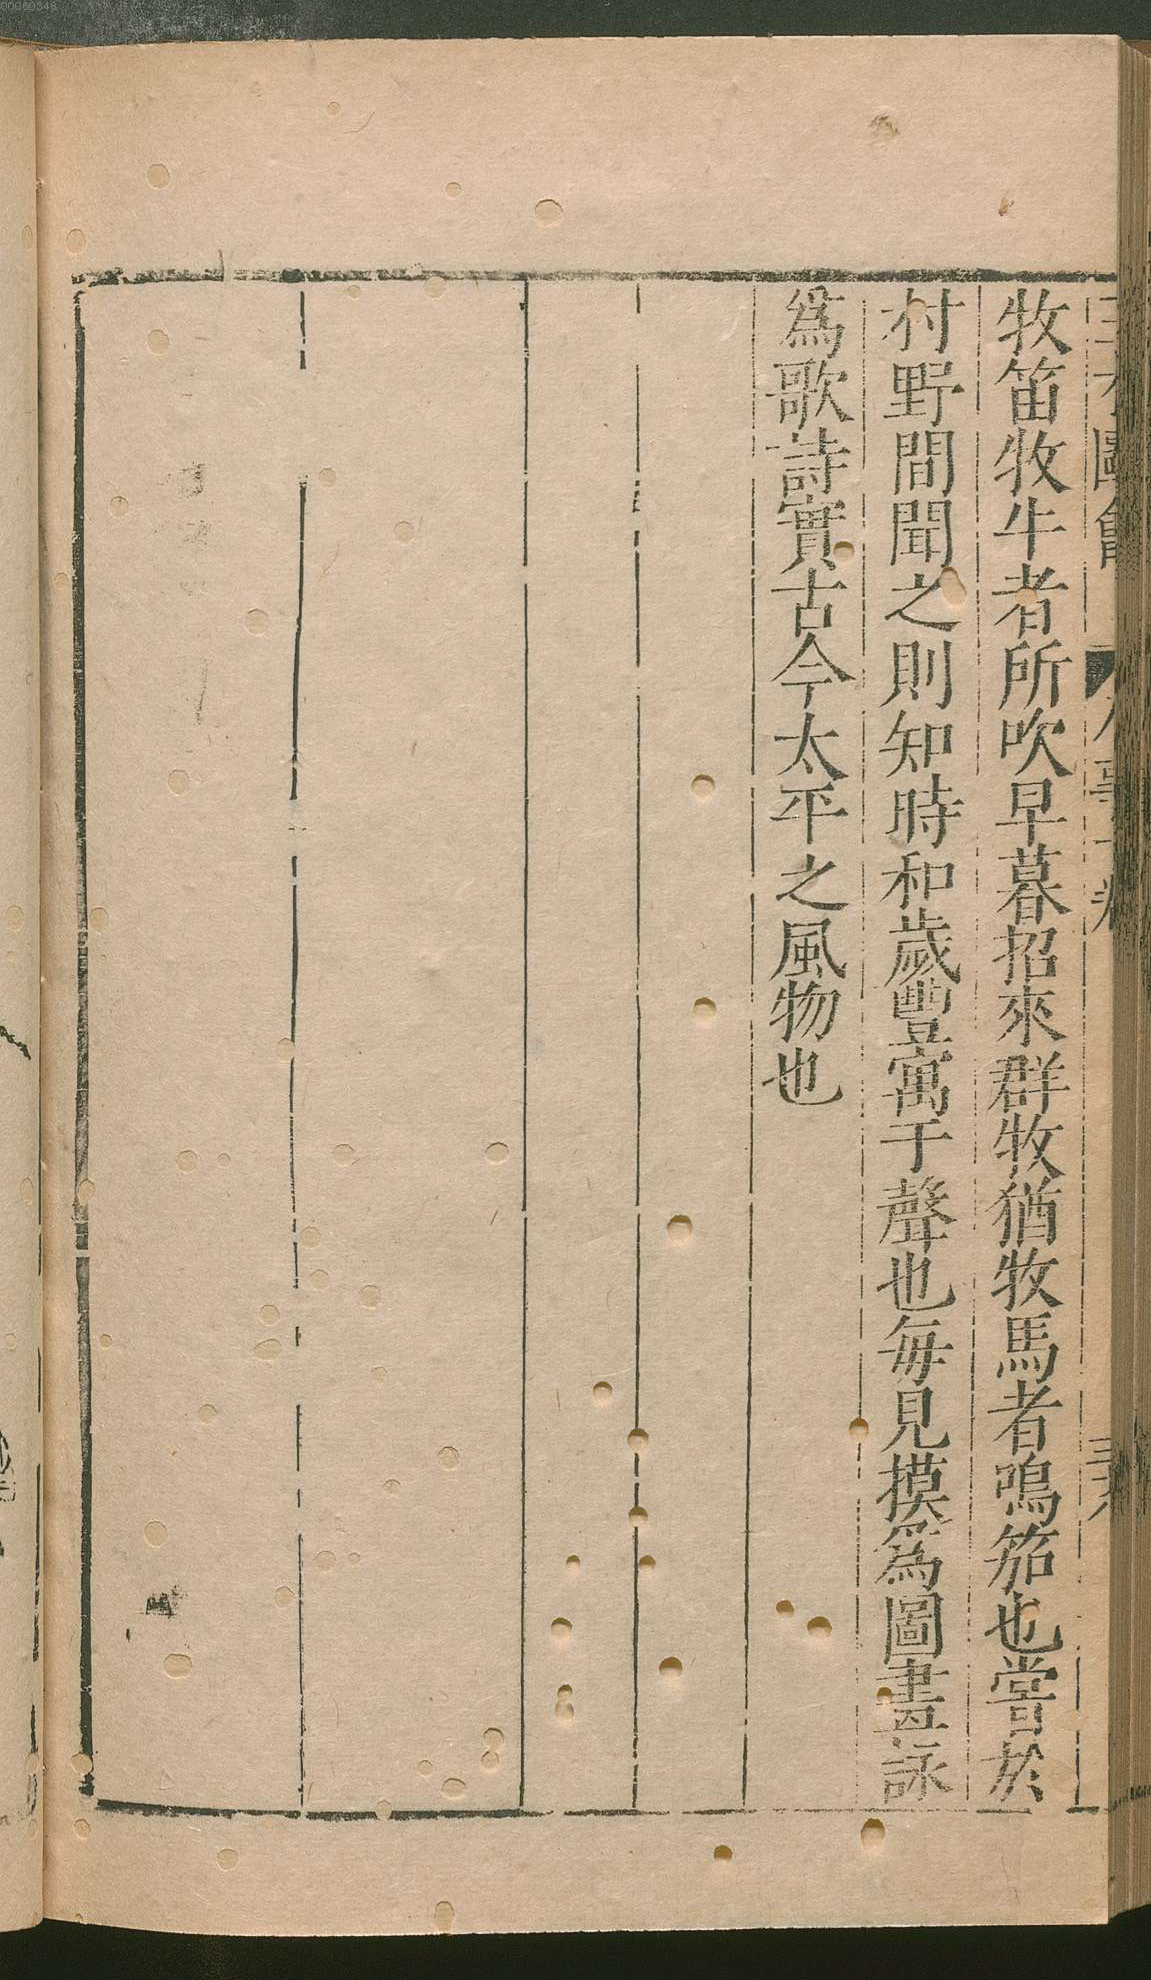 牧笛牧牛者所吹早暮招來群牧猶牧馬者鳴笳也嘗於
村野間聞之則知時和歲豐寓于聲也每見摸爲圖畫詠
爲歌詩實古今太平之風物也
00060346